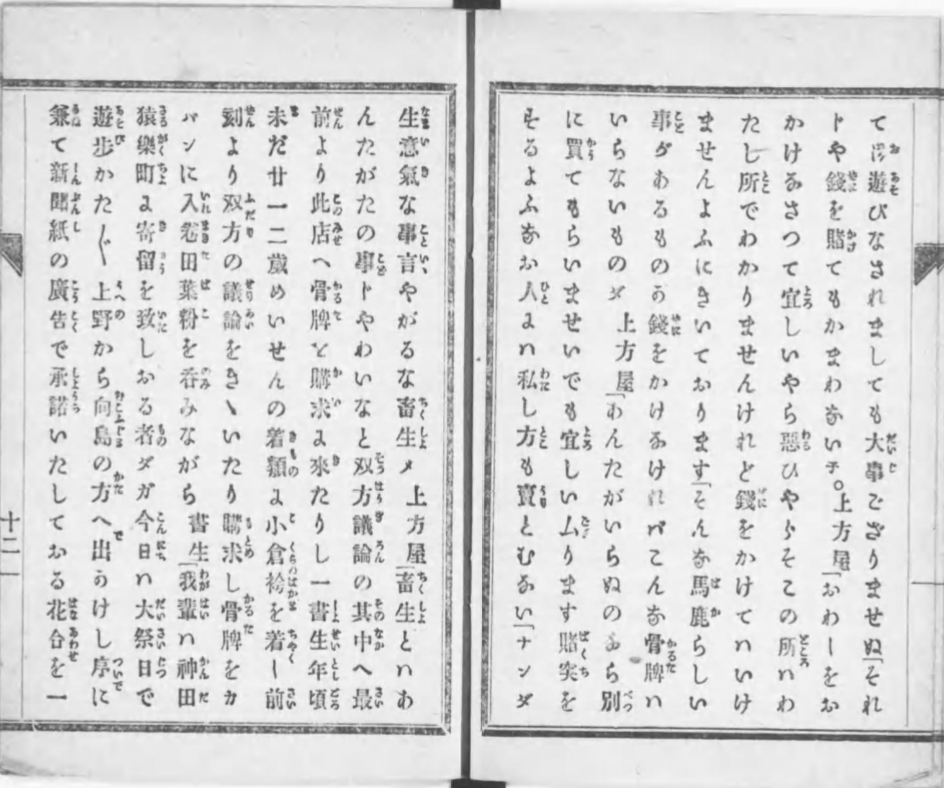 て遊びなされましても大事ござりませぬ「それ
ドや錢を賭てもかまわないヂ。上方屋「おわしをお
かけなさつて宜しいやら惡ひやらそこの所ハわ
たし所でわかりませんけれど錢をかけてハいけ
ませんよふにきいております「そんな馬鹿らしい
事ダあるものう錢をかけなけれバこんな骨牌ハ
いらないものダ 上方屋「あんたがいらぬのなら別
に買てもらいませいでも宜しいムります賭突を
するよふなお人よハ私し方も賣とむない「ナンダ
生意氣な事言やがるな畜生メ 上方屋「畜生とハあ
んたがたの事ドやわいなと双方議論の其中へ最
前より此店へ骨牌を購求よ來たりし一書生年頃
未だ廿一二歳めいせんの着類よ小倉袴を着し前
刻より双方の議論をきゝいたり購求し骨牌をカ
バンに入卷田葉粉を呑みながら 書生「我輩ハ神田
猿樂町よ寄留を致しおる者ダガ今日ハ大祭日で
遊歩かた〲上野から向島の方へ出かけし序に
兼て新聞紙の廣告で承諾いたしておる花合を一
十二